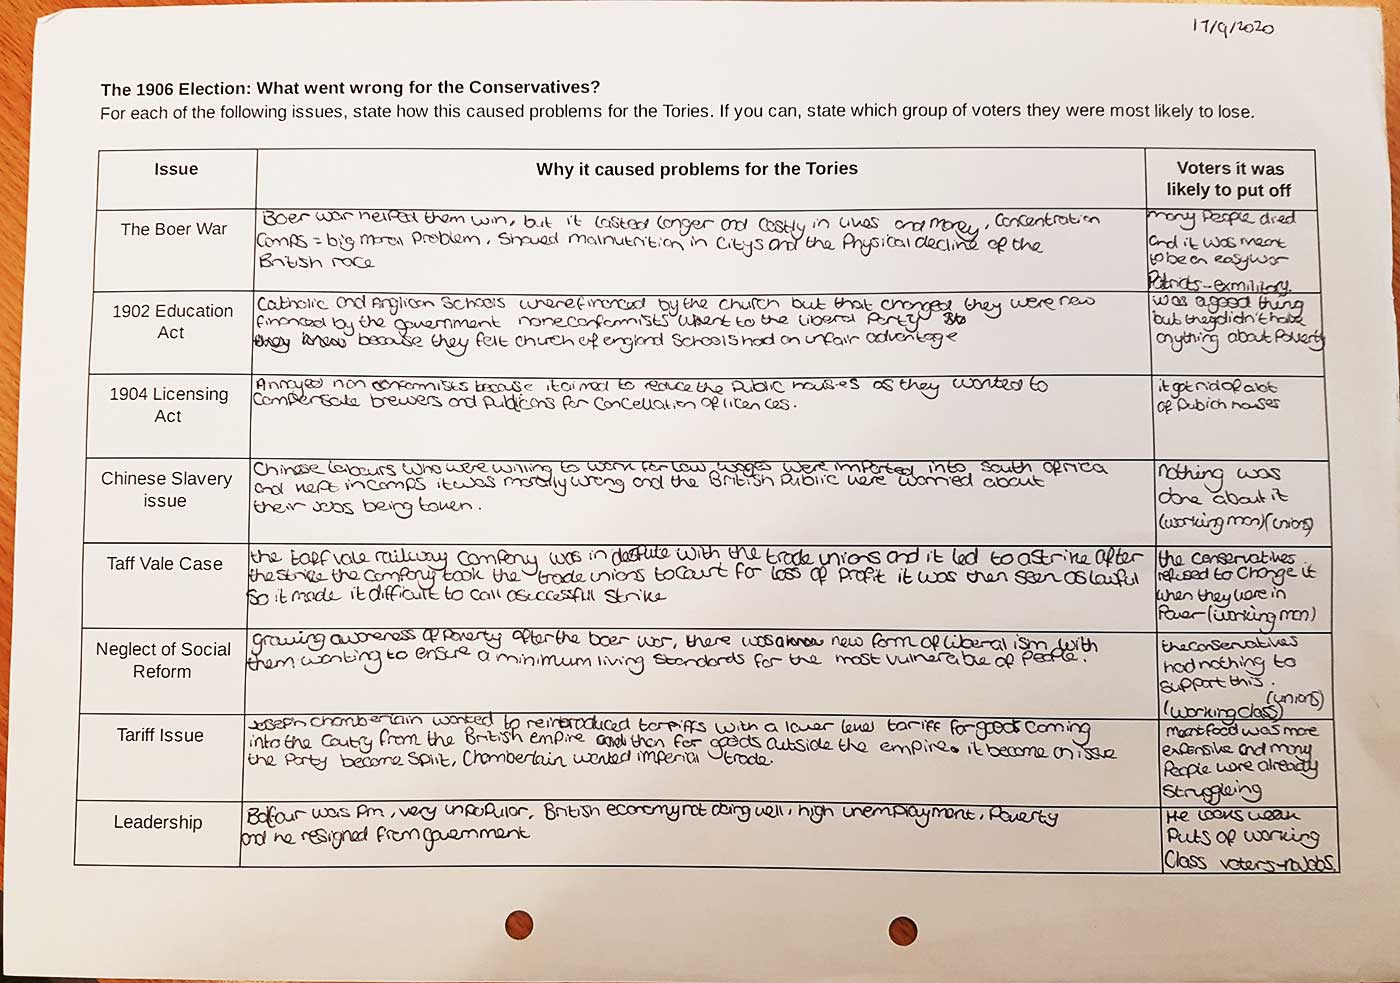 17/9/2020
The 1906 Election: What went wrong for the Conservatives?
For each of the following issues, state how this caused problems for the Tories. If you can, state which group of voters they were most likely to lose.
Issue
Why it caused problems for the Tories
Voters it was
likely to put off
The Boer War
Boer war helped them win, but it lasted longer and costly in lives and money, Concentration
Camps = big moral Problem, Showed malnutrition in Citys and the Physical decline of the
British race
many People died
and it was meant
to be an easy war
Patriots - exmilitary.
1902 Education
Act
Catholic and Anglican Schools where financed by the church but that changed they were new
financed by the government noneconformists went to the liberal Party
they because they felt church of england Schools had an unfair advantage
was a good thing
but they didn't have
anything about Poverty
1904 Licensing
Act
Annoyed non conformists because it aimed to reduce the Public houses as they wanted to
Compensate brewers and Publicans for Cancellation of licences.
it got rid of alot
of Publich houses
Chinese Slavery
issue
Chinese labours who were willing to work for low wages were imported into South africa
and kept in camps it was morally wrong and the British Public were worried about
their Jobs being taken.
nothing was
done about it
(working man) (unions)
Taff Vale Case
the taff vale railway Company was in dispute with the trade unions and it led to a strike after
the strike the company took the trade unions to court for loss of Profit it was then seen as lawful
so it made it difficult to call a successful strike
the conservatives
refused to change it
when they were in
Power (working man)
Neglect of Social
Reform
growing awareness of Poverty after the boer war, there was a new form of liberal ism with
them wanting to ensure a minimum living standards for the most vulnerable of People.
the conservatives
had nothing to
support this.
(unions)
(working class)
Tariff Issue
Joseph Chamberlain wanted to reintroduced tarriffs with a lower level tariff for goods coming
into the Coutry from the British empire and then for goods outside the empire. it became an issue
the Party became Split, Chamberlain wanted imperial trade.
meant food was more
expensive and many
People were already
Struggleing
Leadership
Balfour was Pm, very unpopular, British economy not doing well, high unemployment, Poverty
and he resigned from government
He looks weak
Puts of working
Class voters - no Jobs.